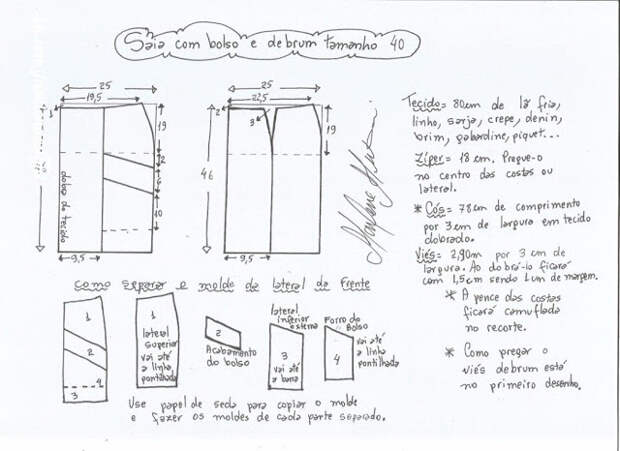 Saia com bolso e debrum tamanho 40
25
19,5
1
19
2
5
10
dobra do tecido
9,5
25
22,5
2
3
19
46
9,5
Tecido= 80cm de lã fria,
linho, sarja, crepe, denin,
brim, gabardine, piquet...
Zíper= 18 cm. Pregue-o
no centro das costas ou
lateral.
* Cós= 78cm de comprimento
por 3cm de largura em tecido
dobrado.
Viés= 2,90m por 3cm de
largura. Ao dobrá-lo ficará
com 1,5cm sendo 1cm de margem.
* A pence das costas
ficará camuflada
no recorte.
* Como pregar o
viés debrum está
no primeiro desenho.
Como separar o molde da lateral da frente
1
2
4
3
1
lateral
superior
vai até
a linha
pontilhada
2
Acabamento
do bolso
lateral
inferior
externa
3
vai até
a barra
Forro do
Bolso
4
vai até
a linha
pontilhada
Use papel de seda para copiar o molde
e fazer os moldes de cada parte separado.